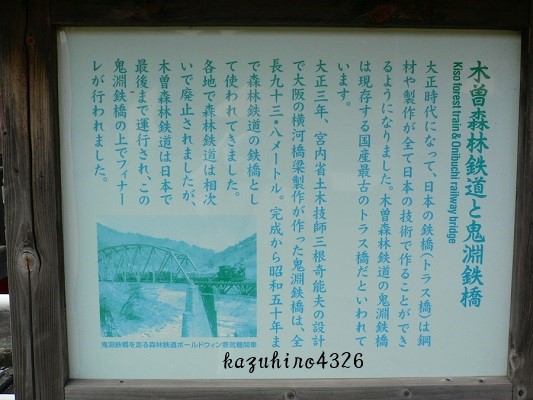 木曽森林鉄道と鬼淵鉄橋
Kiso forest train & Onibuchi railway bridge
大正時代になって、日本の鉄橋(トラス橋)は鋼
材や製作が全て日本の技術で作ることができ
るようになりました。木曽森林鉄道の鬼淵鉄橋
は現存する国産最古のトラス橋だといわれて
います。
大正三年、宮内省土木技師三根奇能夫の設計
で大阪の横河橋梁製作が作った鬼淵鉄橋は、全
長九十三・八メートル。完成から昭和五十年ま
で森林鉄道の鉄橋とし
て使われてきました。
各地で森林鉄道は相次
いで廃止されましたが、
木曽森林鉄道は日本で
最後まで運行され、この
鬼淵鉄橋の上でフィナー
レが行われました。
鬼淵鉄橋を走る森林鉄道ボールドウィン蒸気機関車
kazuhiro4326